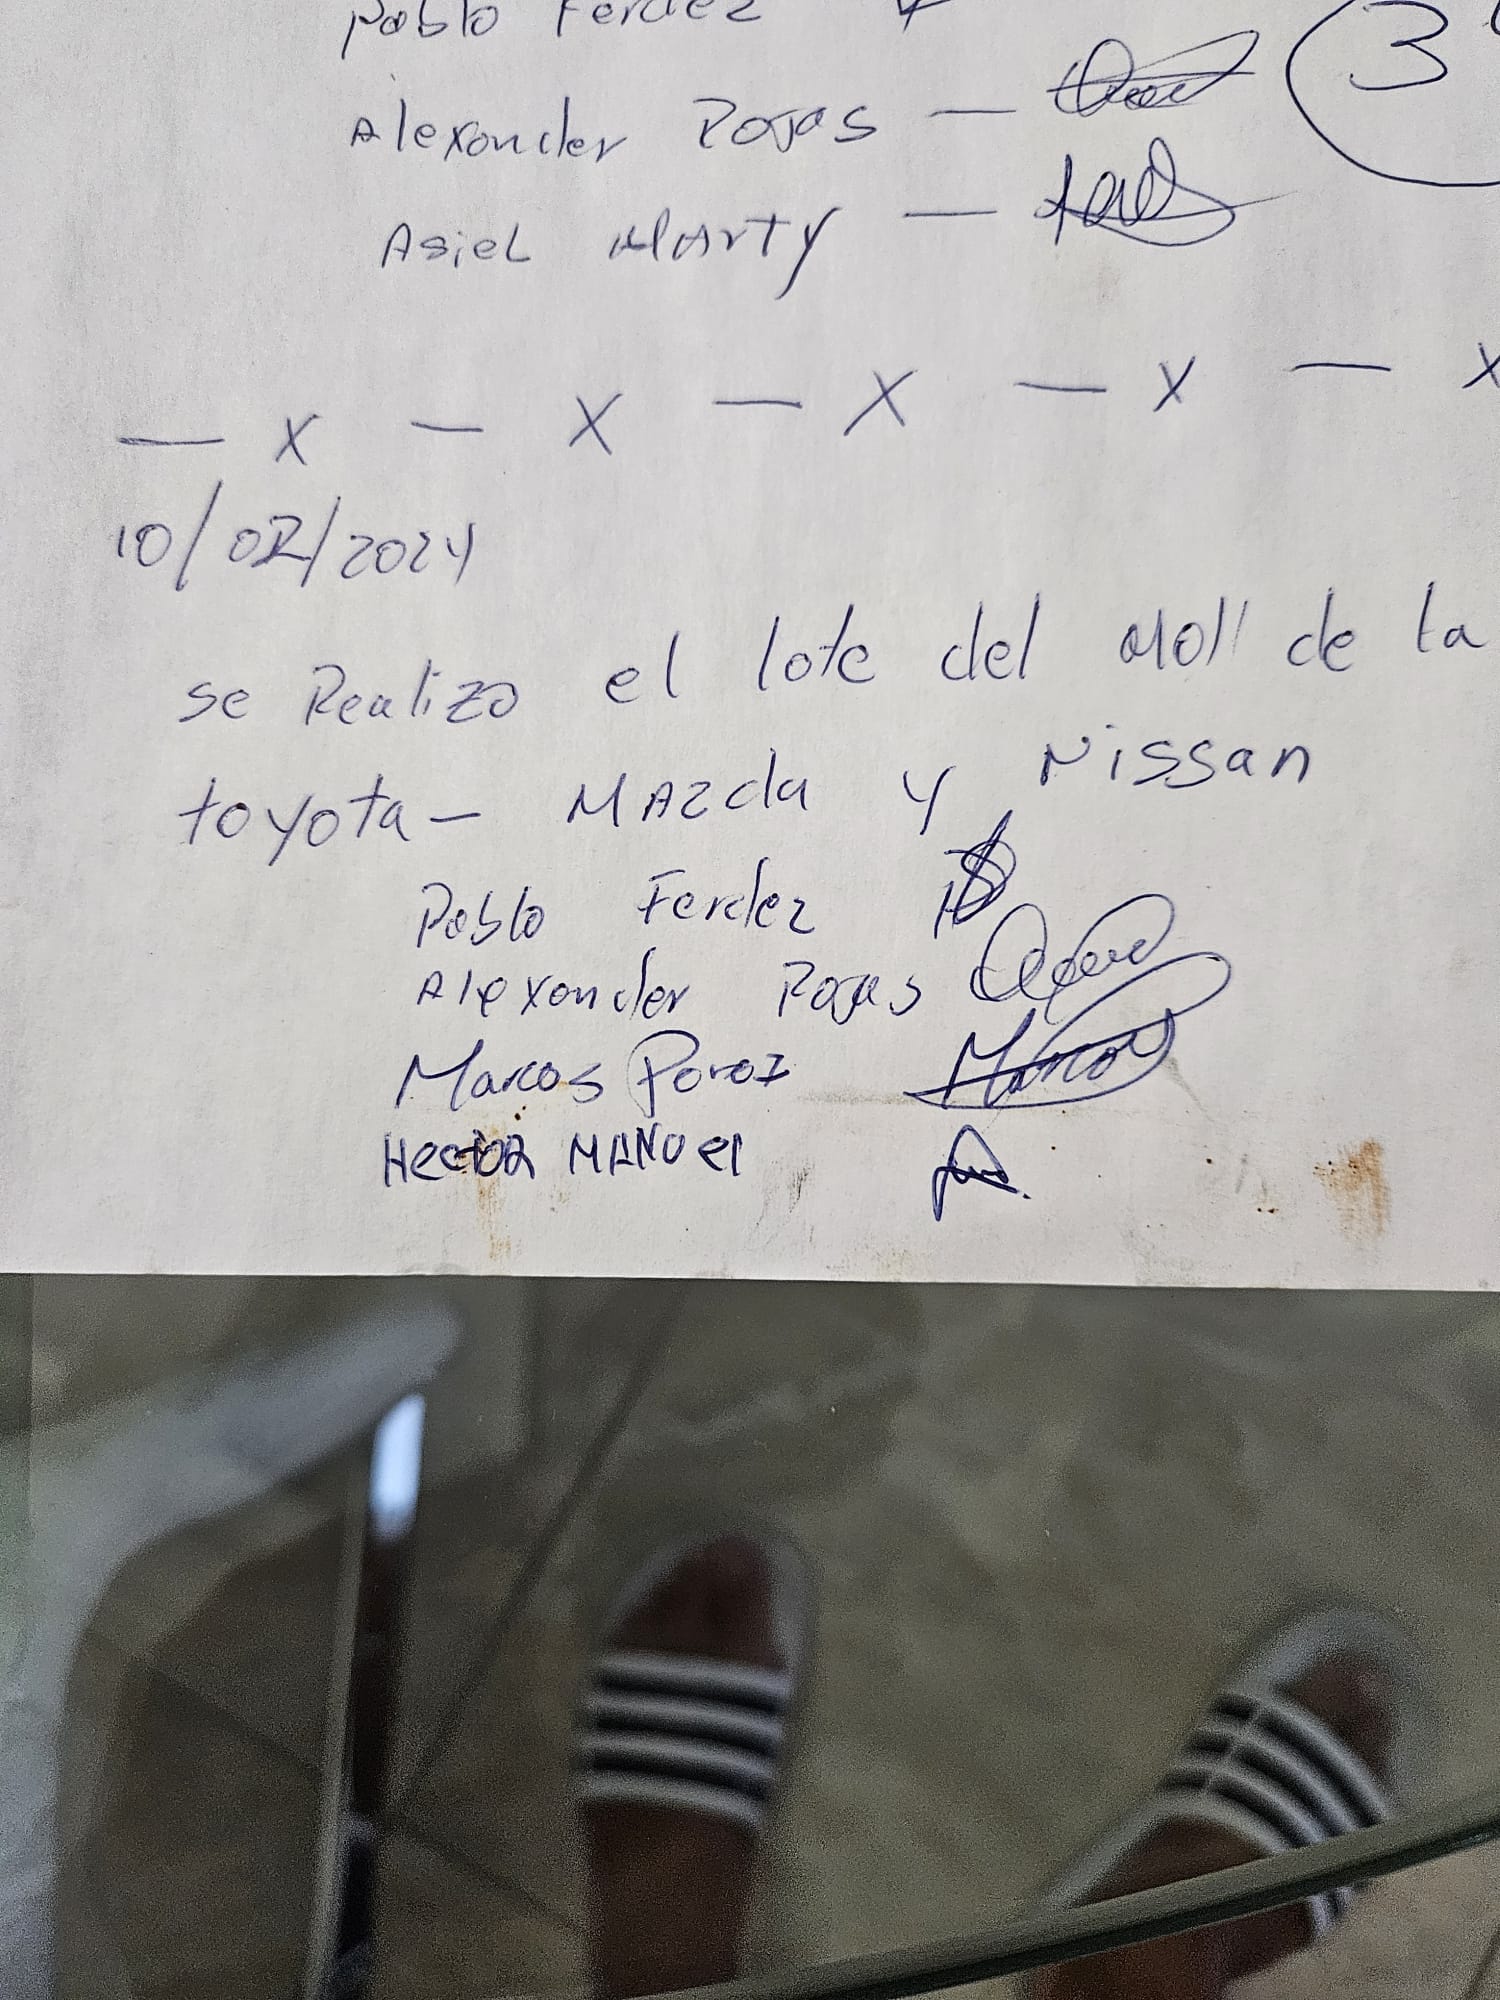 Pablo Ferdez
Alexander Rojas —
3
Asiel Marty —
— x — x — x — x — x
10/02/2024
se Realizo el lote del Moll de la
toyota - Mazda y Nissan
Pablo Ferdez
Alexander Rojas
Marcos Perez Marcos
Hector MANuel